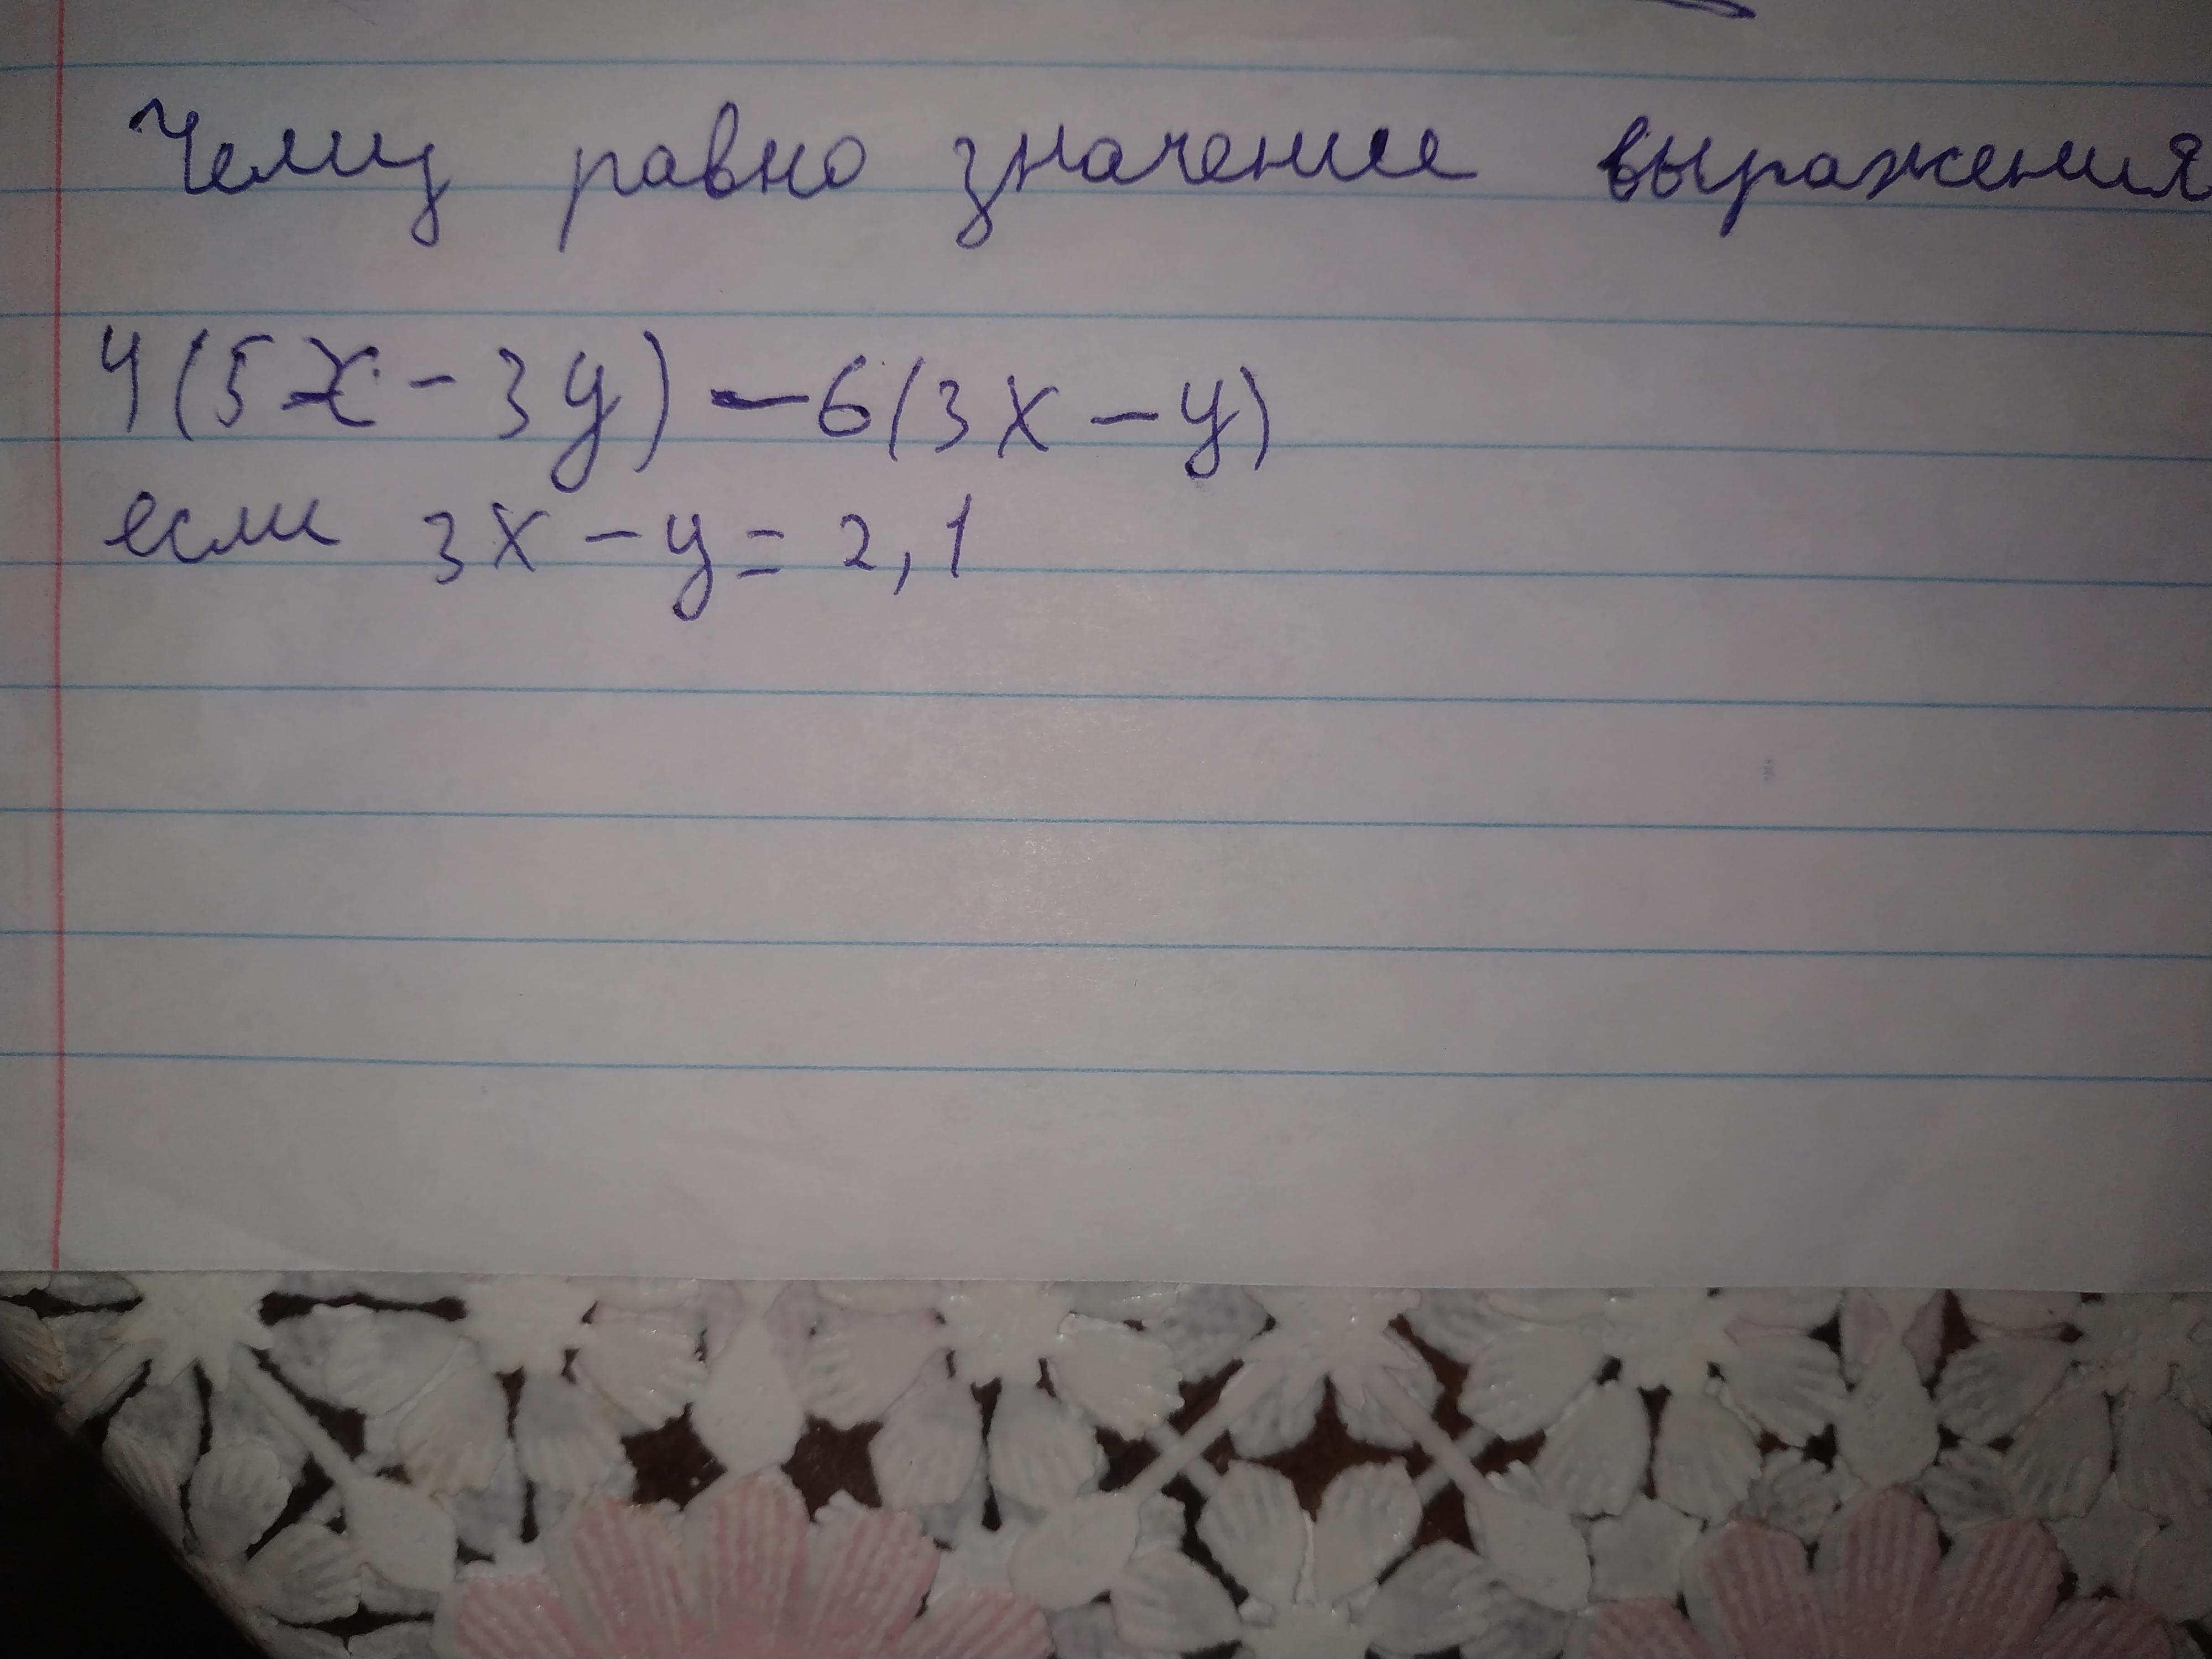 Чему равно значение выражения
4(5x-3y)-6(3x-y)
если 3x-y=2,1